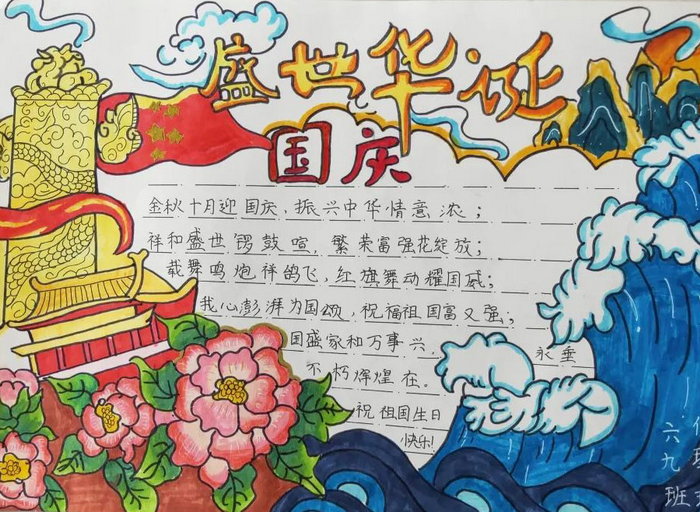 盛世华诞
国庆
金秋十月迎国庆，振兴中华情意浓；
祥和盛世锣鼓喧，繁荣富强花绽放；
载舞鸣炮祥鸽飞，红旗舞动耀国威；
我心澎湃为国颂，祝福祖国富又强；
国盛家和万事兴，永垂
不朽辉煌在。
祝祖国生日
快乐！
六九班